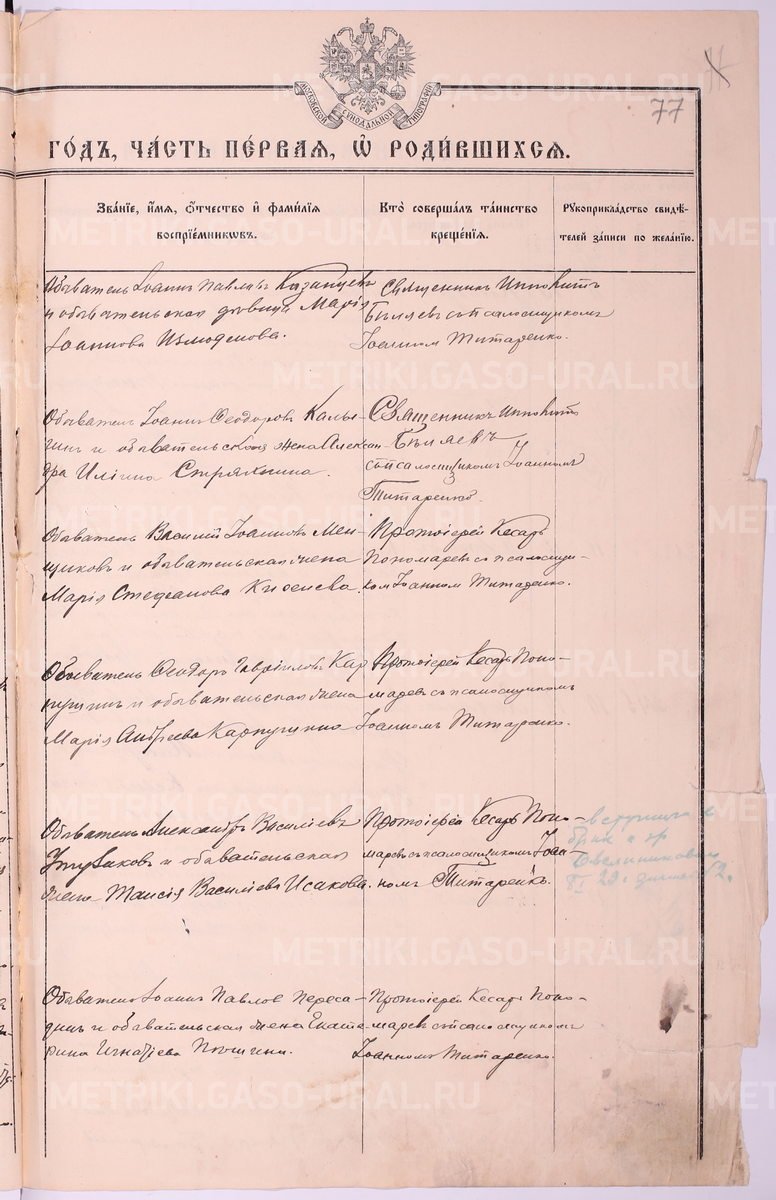 77
МОСКОВСКОЙ СѴНОДАЛЬНОЙ ТИПОГРАФІИ
ГО́ДЪ, ЧА́СТЬ ПЕ́РВАЯ, Ѡ҆ РОДИ́ВШИХСѦ.
Зва́нїе, и҆́мѧ, ѻ҆́тчество и҆ фами́лїѧ
воспрїе́мникѡвъ.
Кто̀ соверша́лъ та́инство
креще́нїѧ.
Рꙋкоприкла́дство свидѣ́-
телей за́писи по жела́нїю.
Обыватель Іоаннъ Павловъ Казанцевъ
и обывательская девица Марія
Іоаннова Измоденова.
Священникъ Ипполитъ
Бѣляевъ съ псаломщикомъ
Іоанномъ Титаренко.
Обыватель Іоаннъ Ѳеодоровъ Калы-
гинъ и обывательская жена Алексан-
дра Иліина Стряхнина.
Священникъ Ипполитъ
Бѣляевъ
съ псаломщикомъ Іоанномъ
Титаренко.
Обыватель Василій Іоанновъ Мен-
щиковъ и обывательская жена
Марія Стефанова Киселева.
Протоіерей Кесарь
Пономаревъ съ псаломщи-
комъ Іоанномъ Титаренко.
Обыватель Ѳеодоръ Гавріиловъ Кар
пушинъ и обывательская жена
Марія Андреева Карпушина
Протоіерей Кесарь Поно-
маревъ съ псаломщикомъ
Іоанномъ Титаренко.
Обыватель Александръ Василіевъ
и обывательская
жена Таисія Василіева Исакова.
Протоіерей Кесарь Поно-
маревъ съ псаломщикомъ Іоан-
номъ Титаренк.
вступила в
брак с гр
29
Обыватель Іоаннъ Павловъ Переса-
динъ и обывательская жена Екате
рина Игнатіева
Протоіерей Кесарь Поно-
маревъ съ псаломщикомъ
Іоанномъ Титаренко.
METRIKI.GASO-URAL.RU